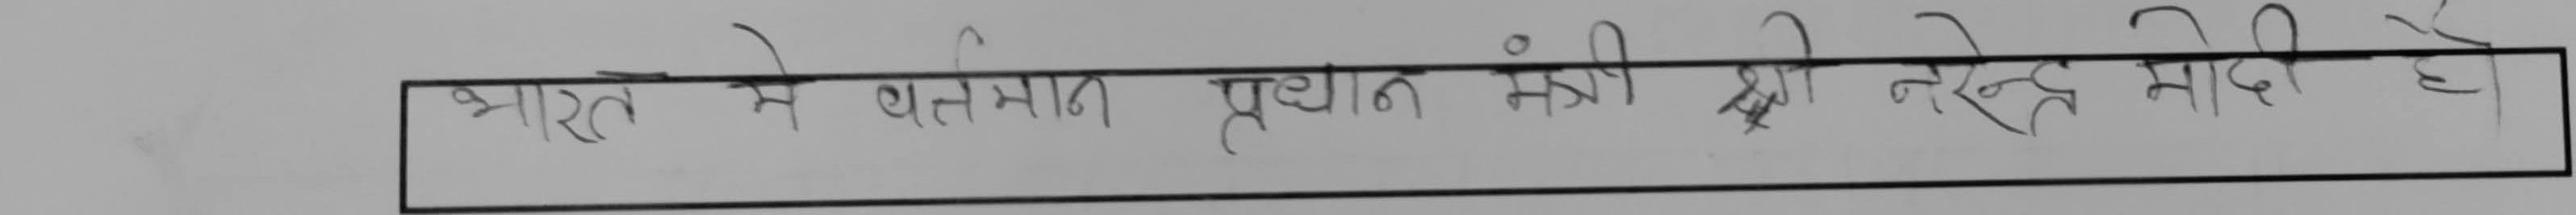 भारत मे वर्तमान प्रधान मंत्री श्री नरेन्द्र मोदी है।